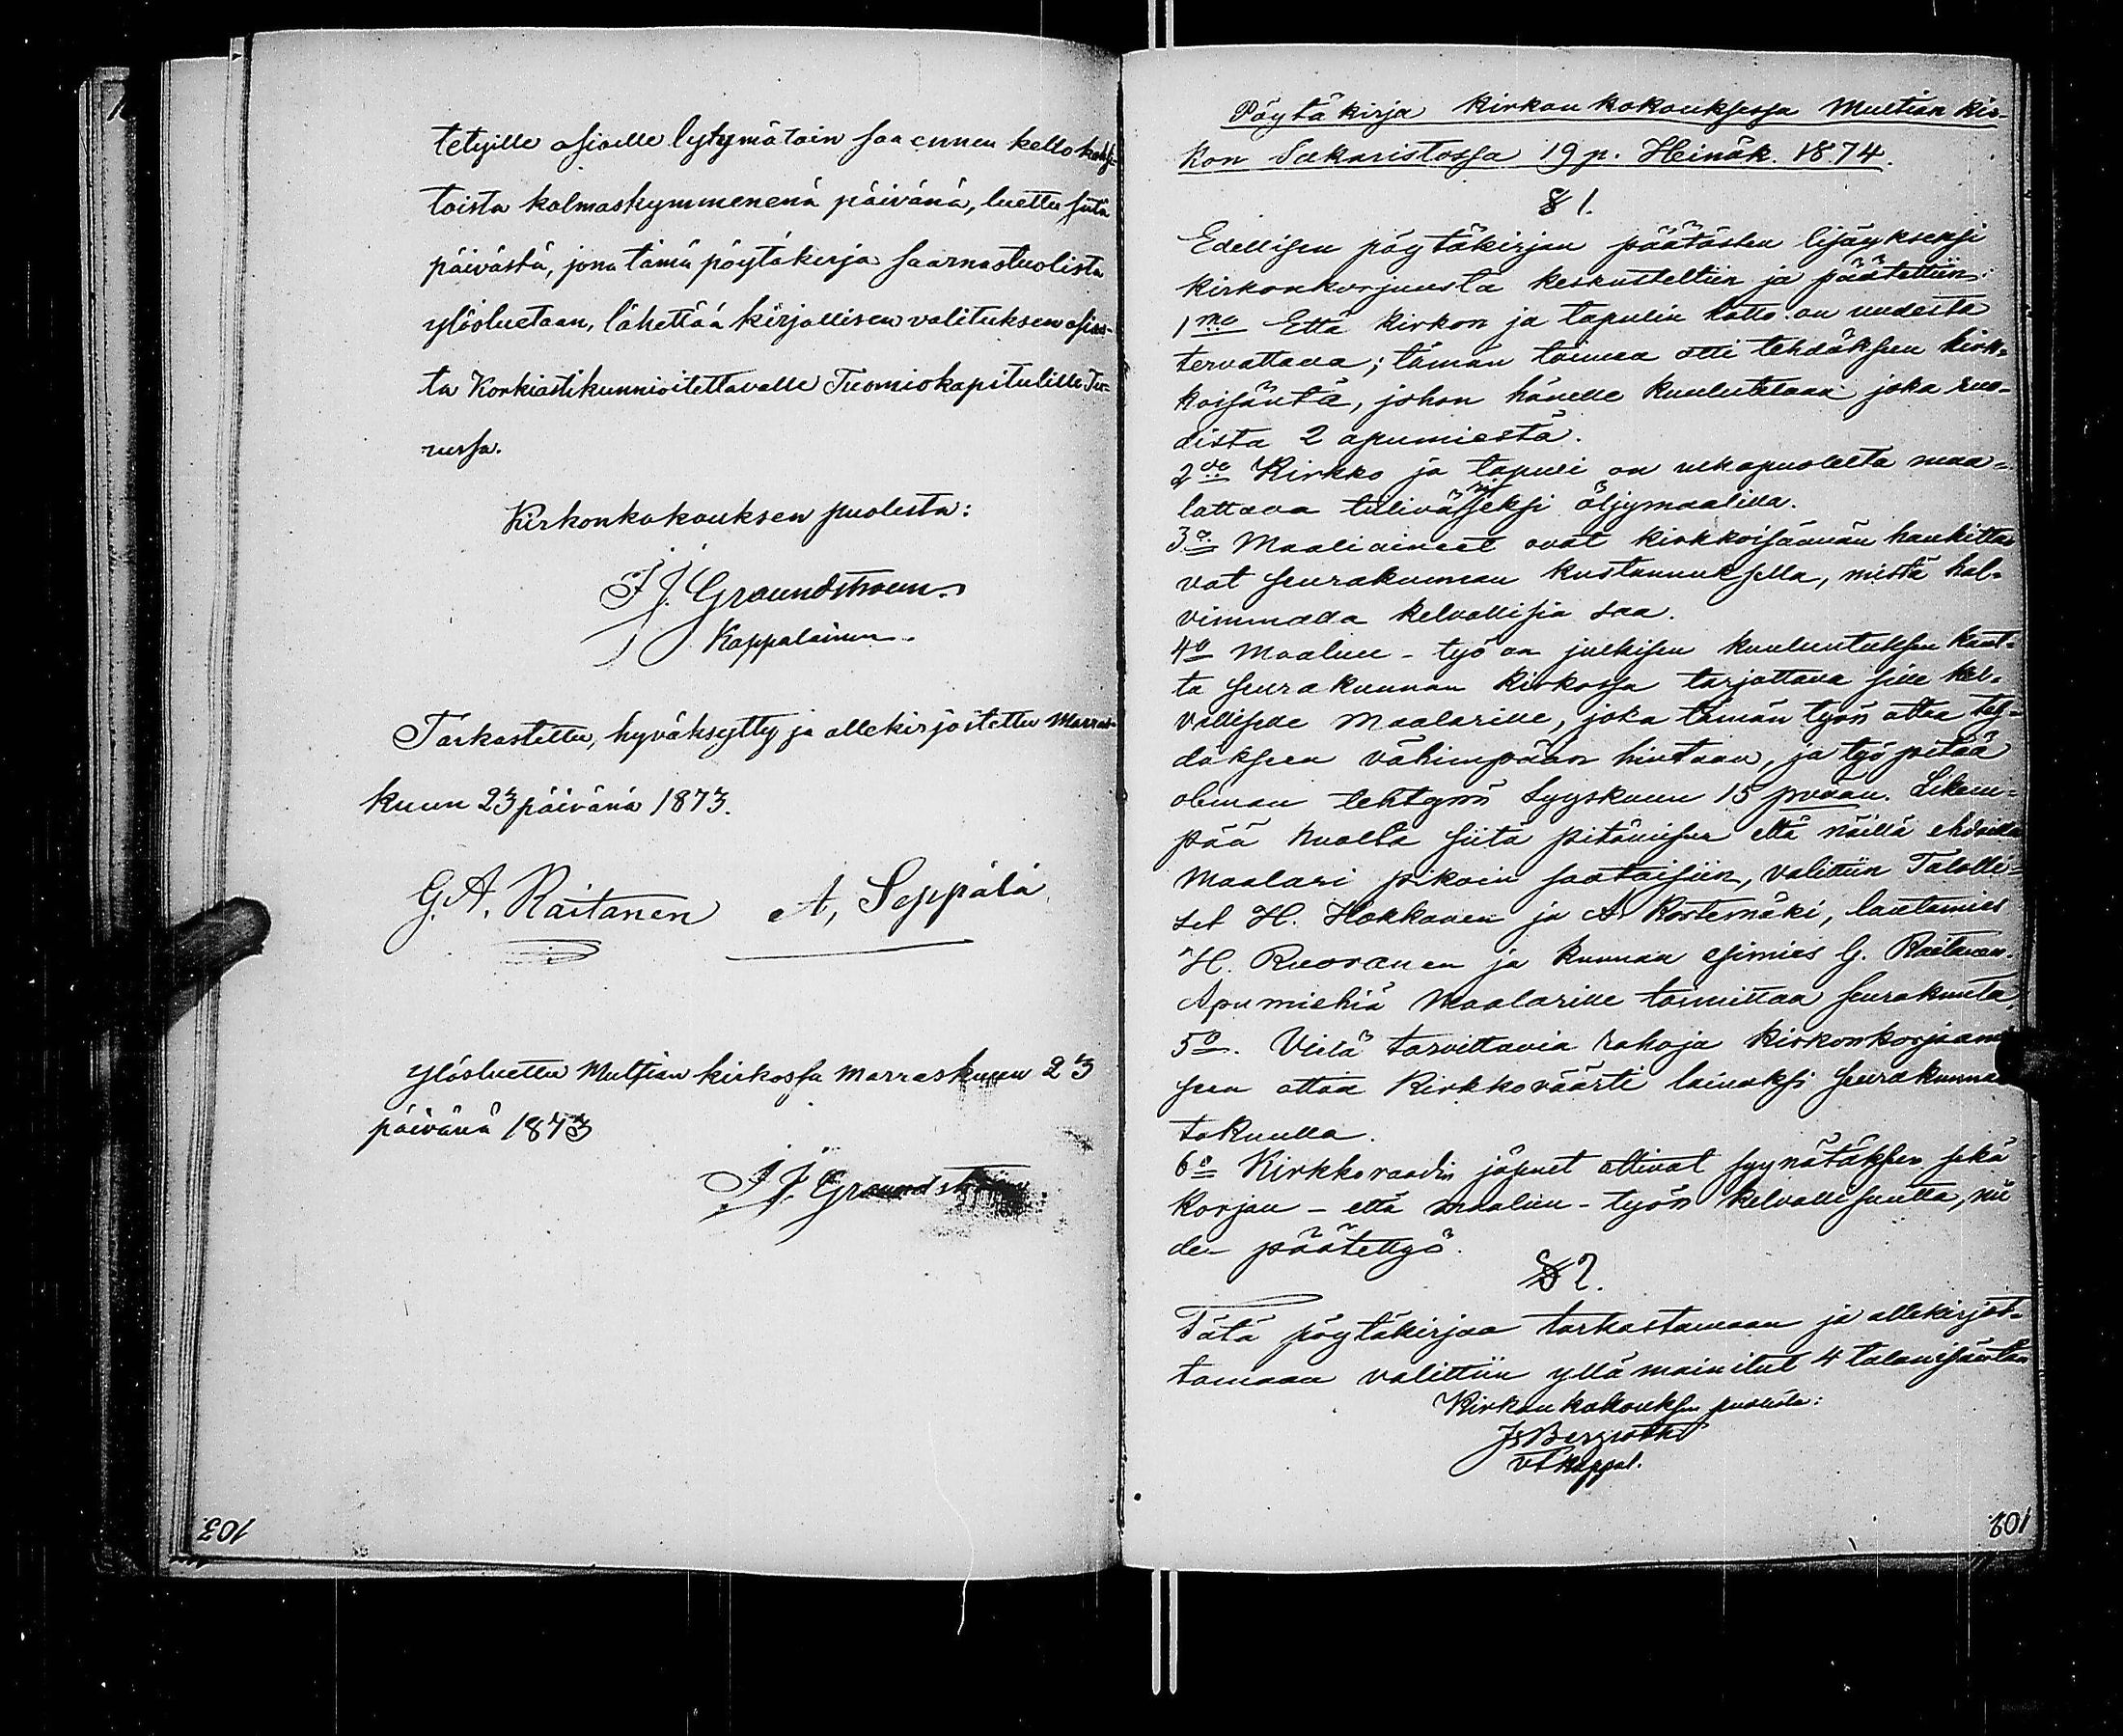 tetyille asioille tytymätoin saa ennen kello kaksi-
toista kolmaskymmenenä päivänä, luettu siitä
päivästä, jona tämä pöytäkirja saarnastuolista
ylösluetaan, lähettää kirjallisen valituksen asias-
ta Korkiastikunnioitettavalle Tuomiokapitulille Tu-
russa.
Kirkonkokouksen puolesta:
J J. Groundstroem.
Kappalainen.
Tarkastettu, hyväksytty ja allekirjoitettu Marras-
kuun 23 päivänä 1873.
G. A. Raitanen A, Seppälä
Ylösluettu Multian kirkossa Marraskuun 23
päivänä 1873
J J. Groundstroem
103
Pöytäkirja Kirkon kokouksessa Multian Kir-
kon Sakaristossa 19 p. Heinäk. 1874.
§ 1.
Edellisen pöytäkirjan päätösten lisäykseksi
kirkonkorjuusta keskusteltiin ja päätettiin:
1mo Että kirkon ja tapulin katto on uudesta
tervattava; tämän toimen otti tehdäksen kirk-
koisäntä, johon hänelle kuulutetaan joka ruo-
dista 2 apumiestä.
2do Kirkko ja tapuli on ulkapuolelta maa-
lattava tuliväriseksi öljymaalilla.
3o Maaliaineet ovat kirkkoisännän hankitta-
vat seurakunnan kustannuksella, mistä hal-
vimmalla kelvollisia saa.
4o Maaluu-työ on julkisen kuuluutuksen kaut-
ta seurakunnan kirkossa tarjottava sille kel-
volliselle Maalarille, joka tämän työn ottaa teh-
däksen vähimpään hintaan, ja työ pitää
oleman tehtynä Syyskuun 15 pvään. Likem-
pää huolta siitä pitämisen että näillä ehdoilla
Maalari pikoin saataisiin, valittiin Talolli-
set H. Hokkanen ja A. Kostemäki, lautamies
H. Ruoranen ja Kunnan esimies G. Raitanen.
Apumiehiä Maalarille toimittaa seurakunta.
5o. Vielä tarvittavia rahoja kirkonkorjaami
seen ottaa Kirkkoväärti lainaksi seurakunnan
takuulla.
6o Kirkkoraadin jäsenet ottivat syynätäksen sekä
Korjau- että maaluu-työn kelvollisuutta, nii
de- päätettyö.
§ 2.
Tätä pöytäkirjaa tarkastamaan ja allekirjoit-
tamaan valittiin yllä mainitut 4 talonisäntää
Kirkon kokouksen puolesta:
Js Bergroth
vt Kappal.
102